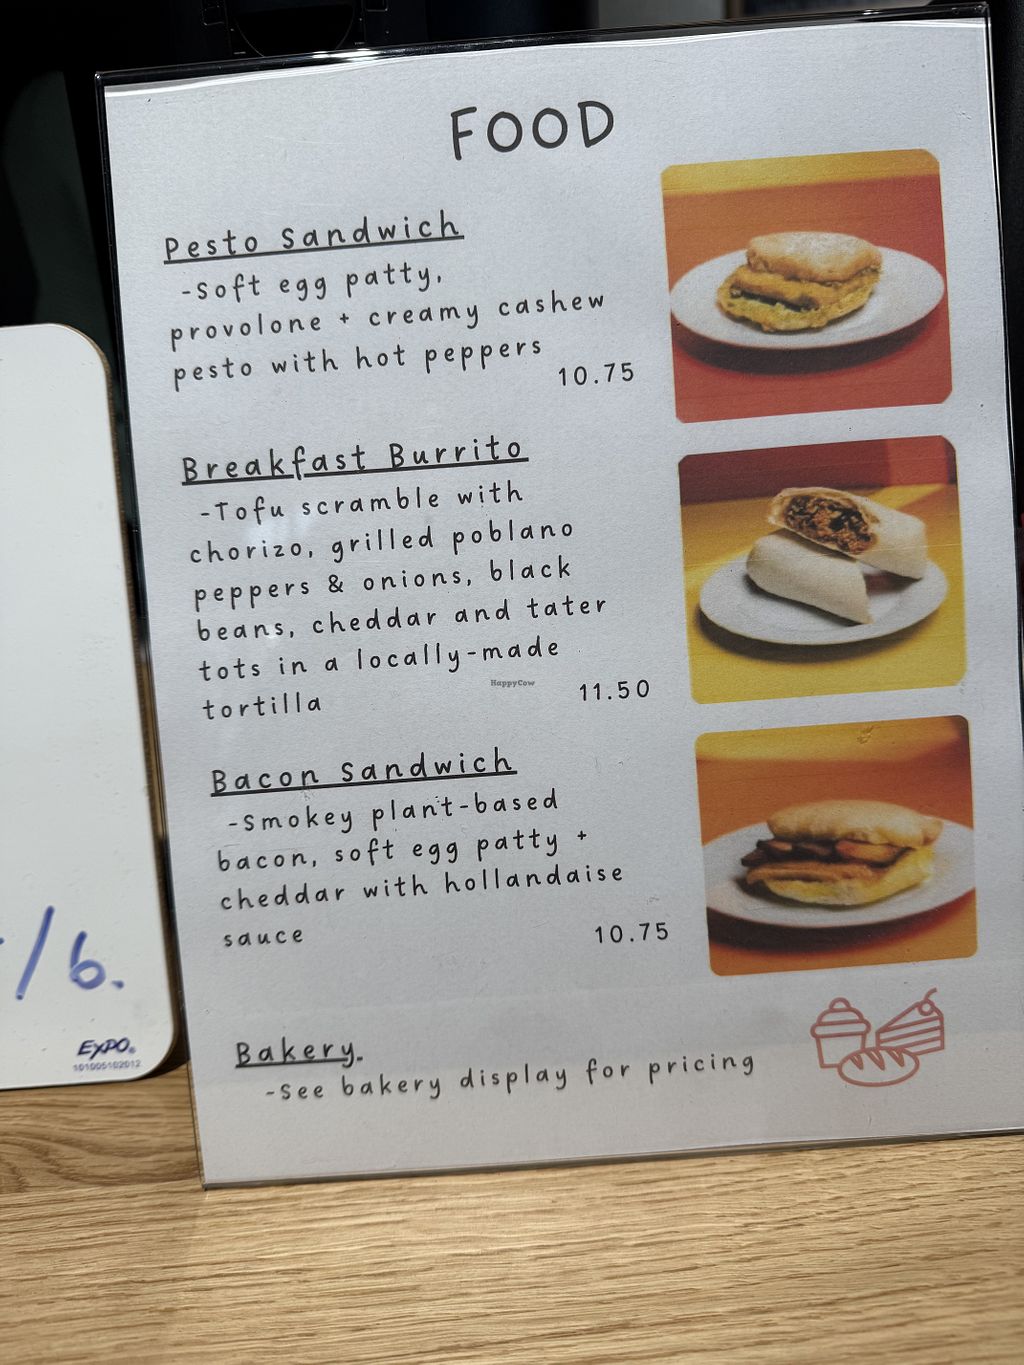 FOOD
Pesto Sandwich
-Soft egg patty,
provolone + creamy cashew
pesto with hot peppers
10.75
Breakfast Burrito
-Tofu scramble with
chorizo, grilled poblano
peppers & onions, black
beans, cheddar and tater
tots in a locally-made
tortilla
11.50
HappyCow
Bacon Sandwich
-Smokey plant-based
bacon, soft egg patty +
cheddar with hollandaise
sauce
10.75
Bakery.
-See bakery display for pricing
/6.
EXPO®
101005102012